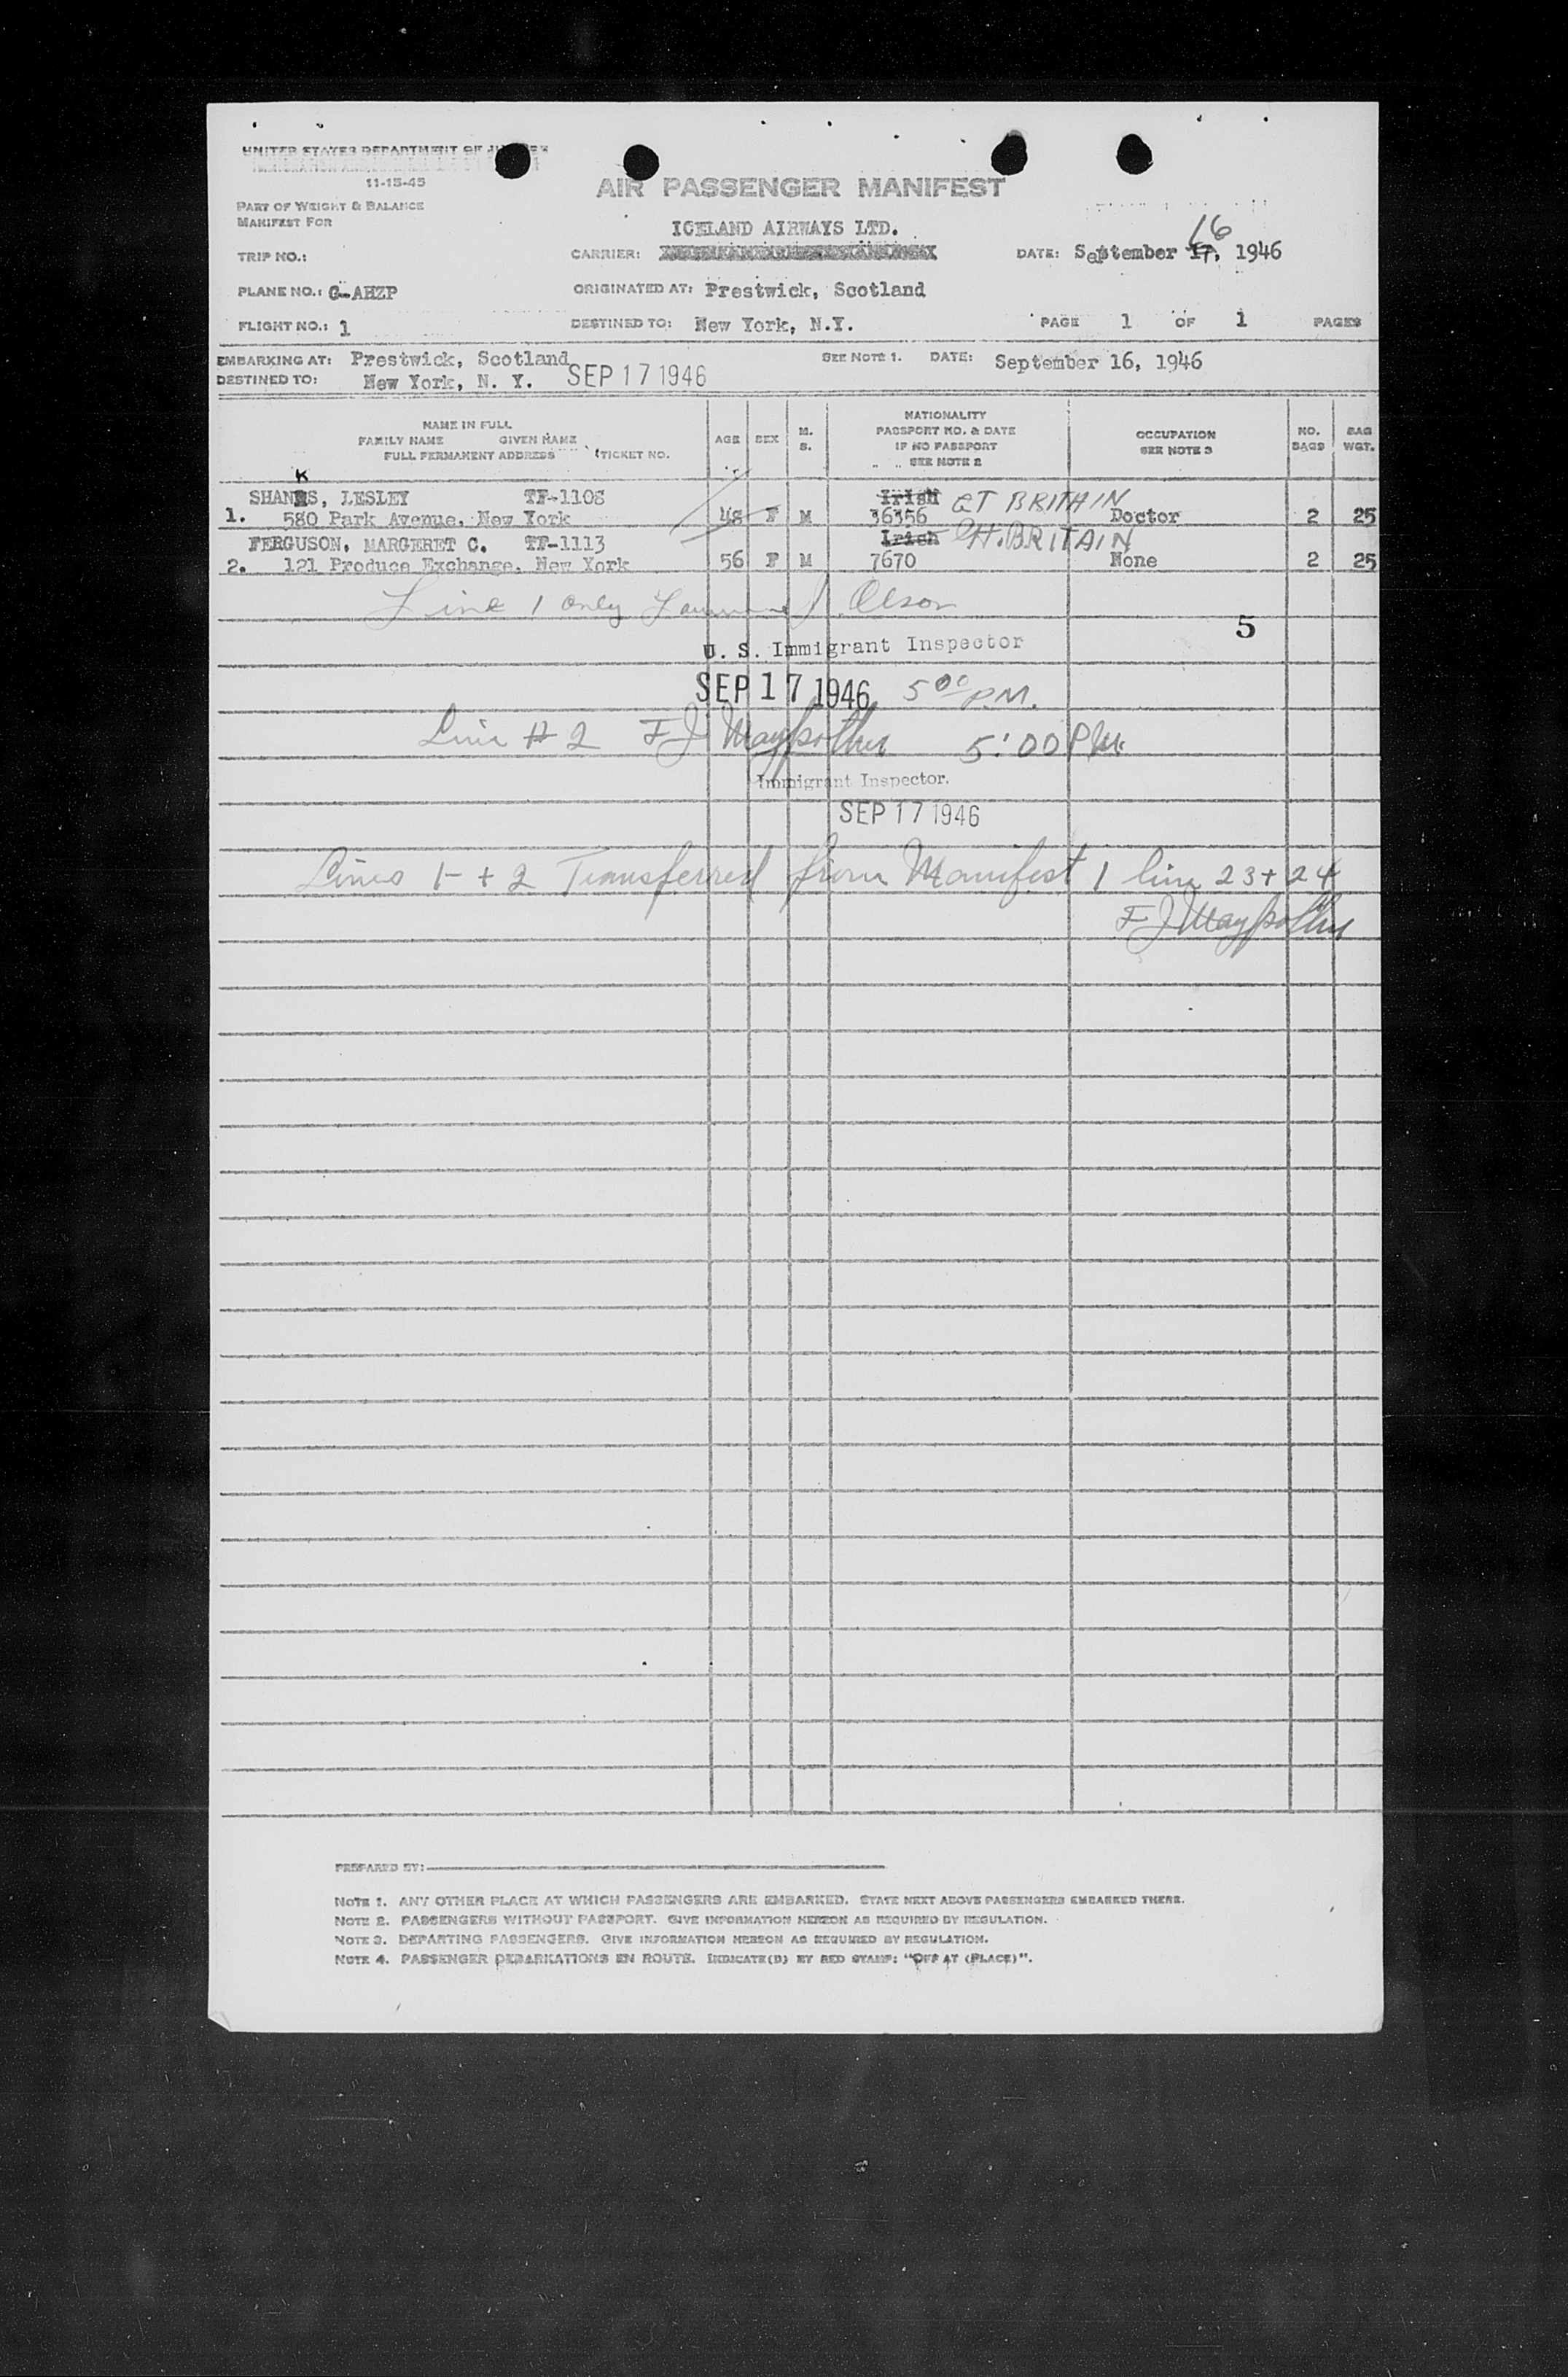 UNITED STATES DEPARTMENT OF JUSTICE
11-15-45
AIR PASSENGER MANIFEST
PART OF WEIGHT & BALANCE
MANIFEST FOR
ICELAND AIRWAYS LTD.
TRIP NO.: CARRIER: DATE: September 17, 16 1946
PLANE NO.: G-AHZP ORIGINATED AT: Prestwick, Scotland
FLIGHT NO.: 1 DESTINED TO: New York, N.Y. PAGE 1 OF 1 PAGES
EMBARKING AT: Prestwick, Scotland SEE NOTE 1. DATE: September 16, 1946
DESTINED TO: New York, N. Y. SEP 17 1946
NAME IN FULL
FAMILY NAME GIVEN NAME
FULL PERMANENT ADDRESS (TICKET NO.
AGE SEX M. S.
NATIONALITY
PASSPORT NO. & DATE
IF NO PASSPORT
SEE NOTE 2
OCCUPATION
SEE NOTE 3
NO. BAGS
BAG WGT.
K
SHANKS, LESLEY TF-1108 Irish GT BRITAIN
1. 580 Park Avenue, New York 48 F M 36356 Doctor 2 25
FERGUSON, MARGERET C. TF-1113 Irish Gt. BRITAIN
2. 121 Produce Exchange, New York 56 F M 7670 None 2 25
Line 1 only Olson
5
U. S. Immigrant Inspector
SEP 17 1946 5 00 P.M.
Line # 2 F J 5:00 PM.
Immigrant Inspector.
SEP 17 1946
Lines 1 + 2 Transferred from Manifest 1 line 23 + 24
F J
PREPARED BY:
NOTE 1. ANY OTHER PLACE AT WHICH PASSENGERS ARE EMBARKED. STATE NEXT ABOVE PASSENGERS EMBARKED THERE.
NOTE 2. PASSENGERS WITHOUT PASSPORT. GIVE INFORMATION HEREON AS REQUIRED BY REGULATION.
NOTE 3. DEPARTING PASSENGERS. GIVE INFORMATION HEREON AS REQUIRED BY REGULATION.
NOTE 4. PASSENGER DEBARKATIONS EN ROUTE. INDICATE(D) BY RED STAMP: "OFF AT (PLACE)".